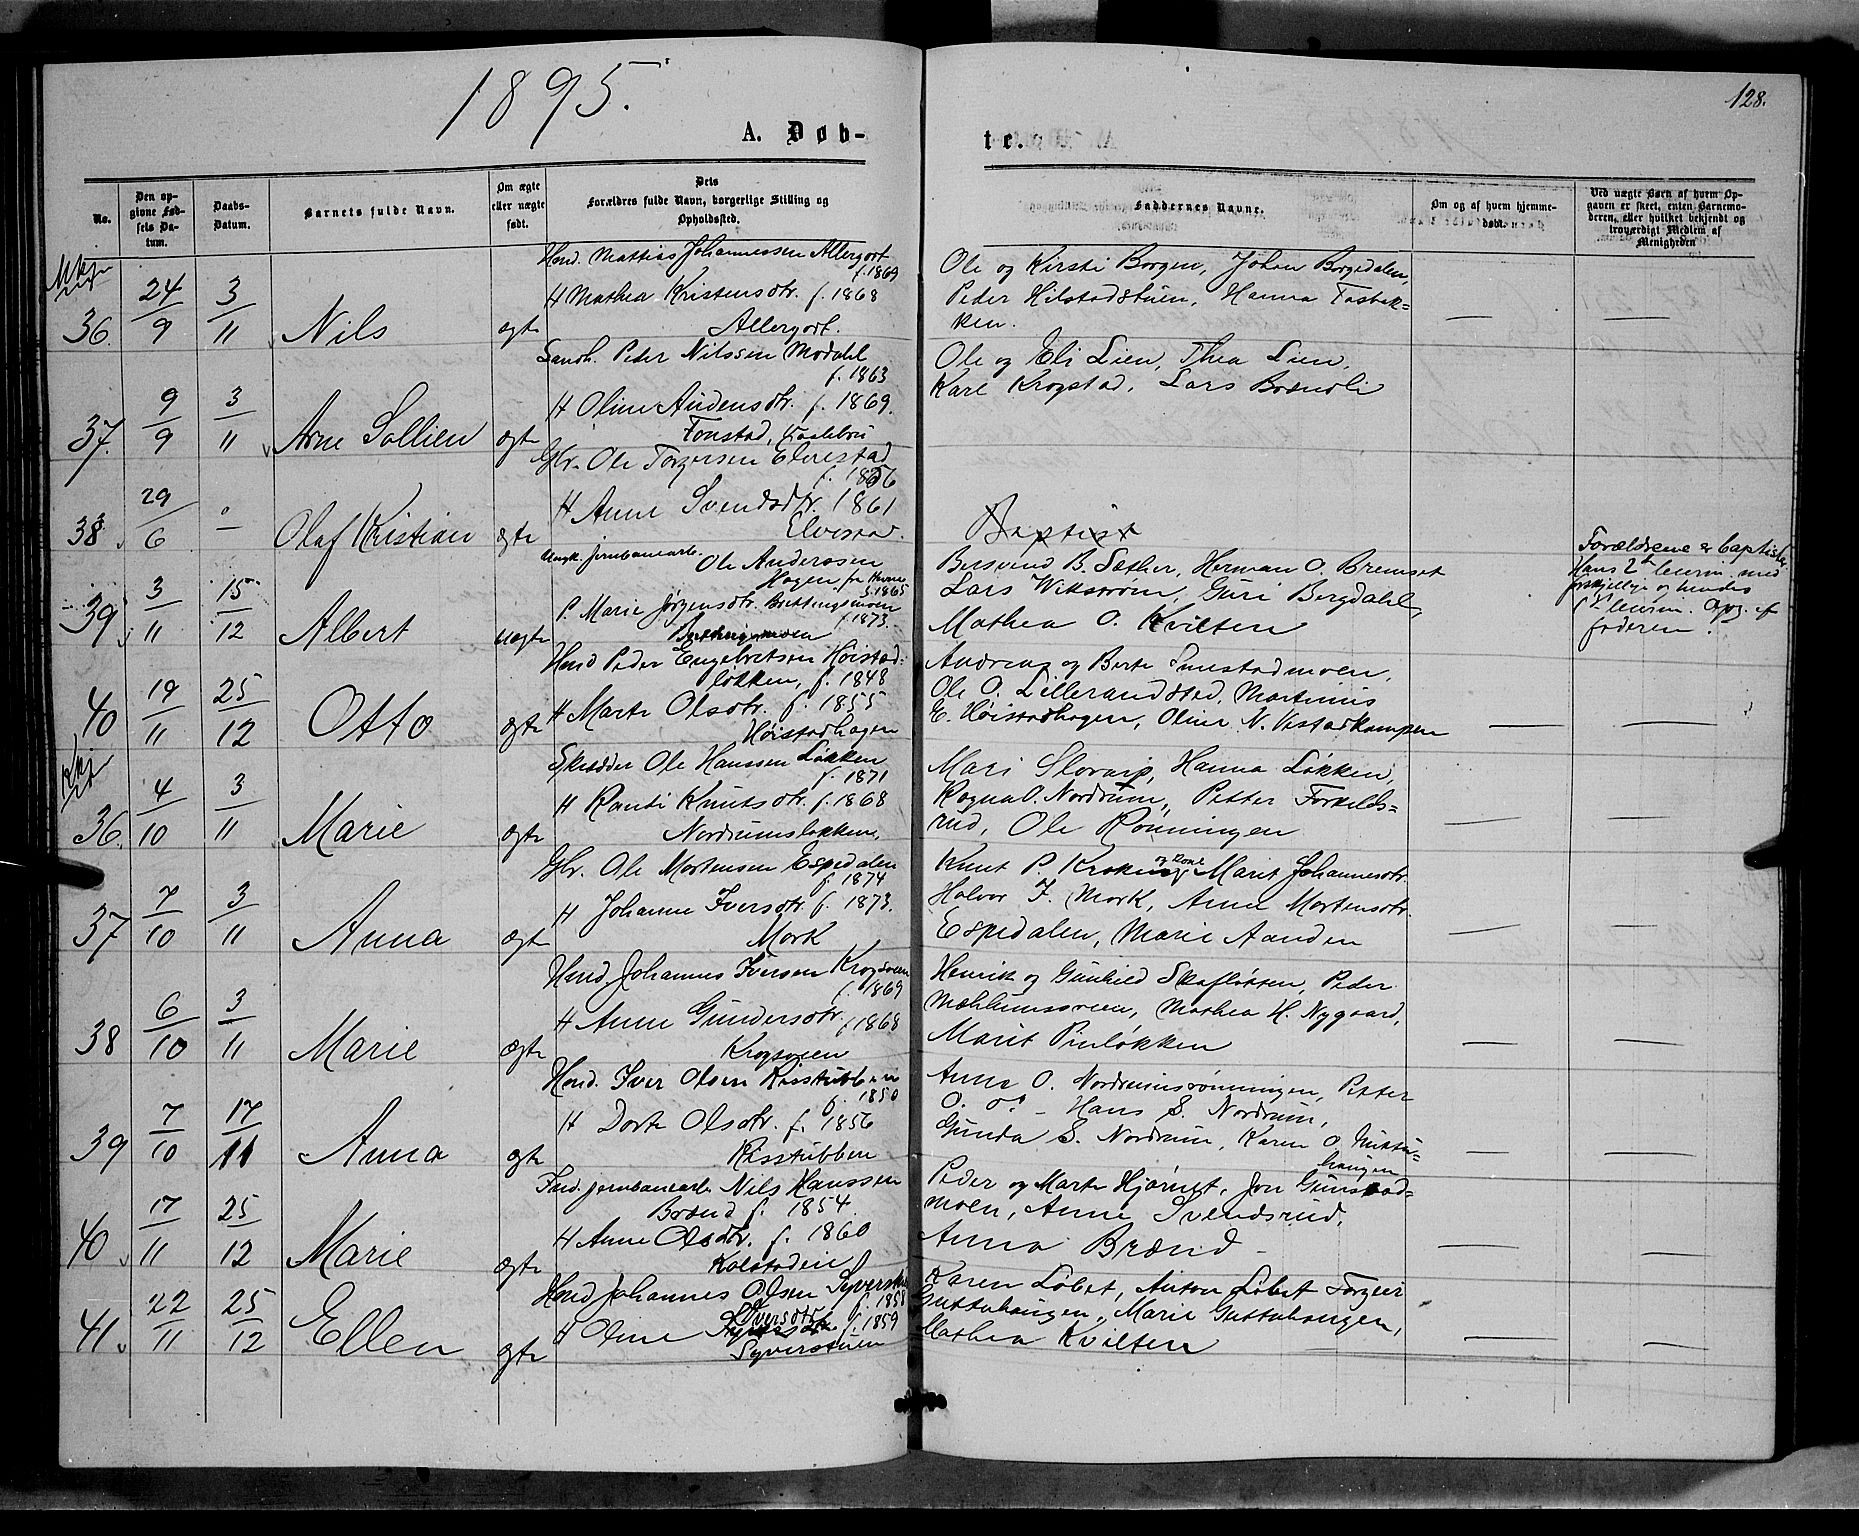 1895.
128.
A. Døb-
te.
No.
Den op-
givne Fød-
sels Da-
tum.
Daabs-
Datum.
Barnets fulde Navn.
Om ægte
eller uægte
født.
Dets
Forældres fulde Navn, borgerlige Stilling og
Opholdssted.
Faddernes Navne.
Om og af hvem hjemme-
døbt.
Ved uægte Barn af hvem Op-
gaven er skeet, enten Barnemo-
deren, eller hvilket bekjendt og
troværdigt Medlem af
Menigheden
36. 24/9 3/11 Nils ægte
Hmd. Mattias Johannessen Allergodt
f. 1869
H Mathea Kristensdtr. f. 1868
Allergodt.
Ole og Kirsti Borgen, Johan Borgedalen,
Peder Hilstadstuen, Hanna Fosbæk-
ken.
37. 9/9 3/11 Arne Sollien ægte
Sandh. Peder Nilssen Modahl
f. 1863
H Oline Audensdtr. f. 1869.
Fonstad,
Ole og Eli Lien, Thea Lien,
Kari Krogstad, Lars Brændli
38. 29/6 Olaf Kristian ægte
Gbr. Ole Torgersen Elvestad
f. 1856
H Anne Svendsdtr. 1861
Elvestad.
Baptist
Forældrene er baptister
39. 3/11 15/12 Albert uægte
Ungk. jernbanearb. Ole Anderssen
Hagen
f. 1865
P. Marie Jørgensdtr. Brettingsmoen
f. 1873.
Brettingsmoen
Bersvend B. Sæther, Herman O. Bremset
Lars Wiksrøm, Guri Bergdahl,
Mathea O. Kvilten
Hans 2det leierm. med
forskjellige og hendes
1ste leierm. Opg. af
faderen.
40 19/11 25/12 Otto ægte
Hmd Peder Engebretsen Høistad-
løkken, f. 1848
H Marte Olsdtr. f. 1855
Høistadhagen
Andreas og Berte Smestadmoen,
Ole O. Lillerandstad, Martinus
E. Høistadhagen, Oline N. Vestadkampen
36. 4/10 3/11 Marie ægte
Skrædder Ole Hanssen Løkken
f. 1871
H Randi Knutsdtr. f. 1868
Nordrumsløkken,
Mari Slovarp, Hanna Løkken,
Ragna O. Nordrum, Petter Torkilds-
rud, Ole Rønningen
37 7/10 3/11 Anna ægte
Gbr. Ole Mortensen Espedalen
f. 1874
H Johanne Iversdtr. f. 1873.
Mork
Knut P. Kroken og Kone Marit Johannesdtr.
Halvor I. Mork, Anne Mortensdtr.
Espedalen, Marie Aanden
38 6/10 3/11 Marie ægte
Hmd. Johannes Iversen Krogsveen
f. 1869
H Anne Gundersdtr. f. 1868
Krogsveen
Henrik og Gunhild Skafløtten, Peder
Mæhlumsveen, Mathea H. Nygaard,
Marit Pinløkken
39 7/10 17/11 Anna ægte
Hmd. Iver Olsen Risstubben
f. 1850
H Dorte Olsdtr. f. 1856
Risstubben
Anne O. Nordrumsrønningen, Petter
O. do - Hans S. Nordrum,
Gunda S. Nordrum, Karen O.
haugen
40 17/11 25/12 Marie ægte
Ind. jernbanearb. Nils Hanssen
Brænd f. 1854.
H Anne Olsdtr. f. 1860
Kolstadeie
Peder og Marte Hjørnet, Jon Gunstad-
moen, Anne Svendsrud,
Anna Brænd
41. 22/11 25/12 Ellen ægte
Hmd Johannes Olsen Syverstuen
f. 1858
H Oline Iversdtr. f. 1859
Syverstuen
Karen Løbet, Anton Løbet Torger
Guttuhaugen, Marie Guttuhaugen,
Mathea Kvilten